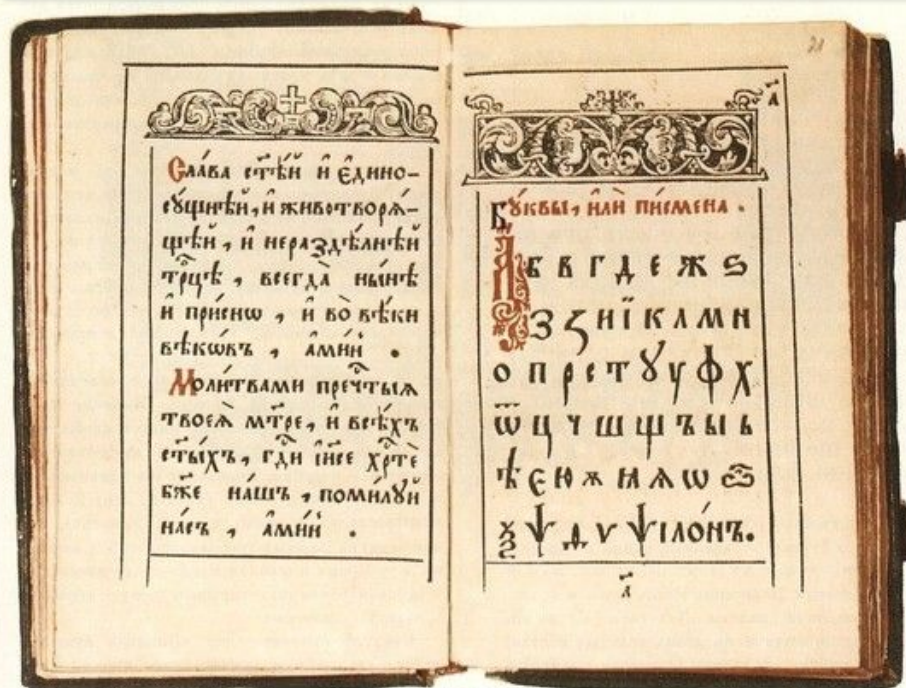 Сла́ва ст҃ѣ́й и҆ є҆ди́но-
сꙋ́щнѣй, и҆ животворѧ́-
щѣй, и҆ нераздѣ́лнѣй
трⷪ҇цѣ, всегда̀ ны́нѣ
и҆ при́снѡ, и҆ во̀ вѣ́ки
вѣкѡ́въ, а҆ми́нь.
Моли́твами пречⷭ҇тыѧ
твоеѧ̀ мт҃ре, и҆ всѣ́хъ
ст҃ы́хъ, гдⷭ҇и і҆и҃се хрⷭ҇тѐ
бж҃е на́шъ, поми́лꙋй
на́съ, а҆ми́нь.
21
а҃
Бꙋ́квы, и҆лѝ пи́смена.
А б в г д е ж ѕ
з ꙁ и ї к л м н
о п р с т ꙋ у ф х
ѿ ц ч ш щ ъ ы ь
ѣ є ю ѫ ꙗ ѧ ѡ
ѯ ѱ ѵ ѱїло́нъ.
а҃